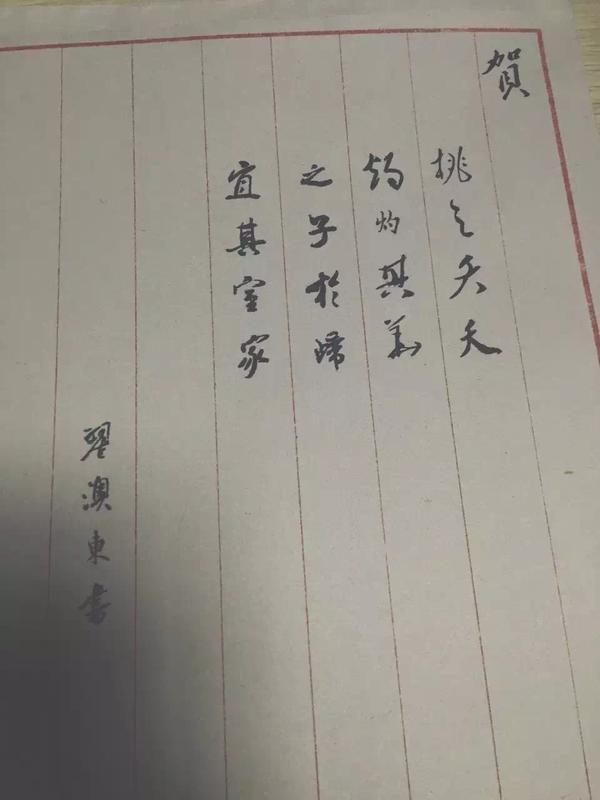 賀
桃之夭夭
灼灼其華
之子於歸
宜其室家
翟澳東書